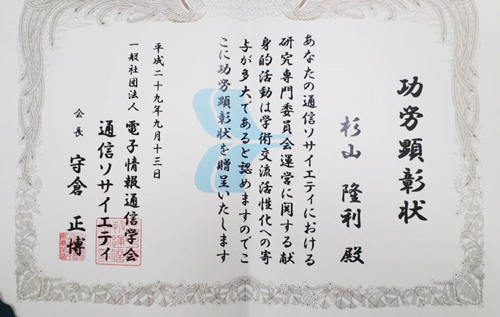 功労顕彰状
杉山 隆利 殿
あなたの通信ソサイエティにおける
研究専門委員会運営に関する献
身的活動は学術交流活性化への寄
与が多大であると認めますのでこ
こに功労顕彰状を贈呈いたします
平成二十九年九月十三日
一般社団法人 電子情報通信学会
通信ソサイエティ
会長 守倉 正博